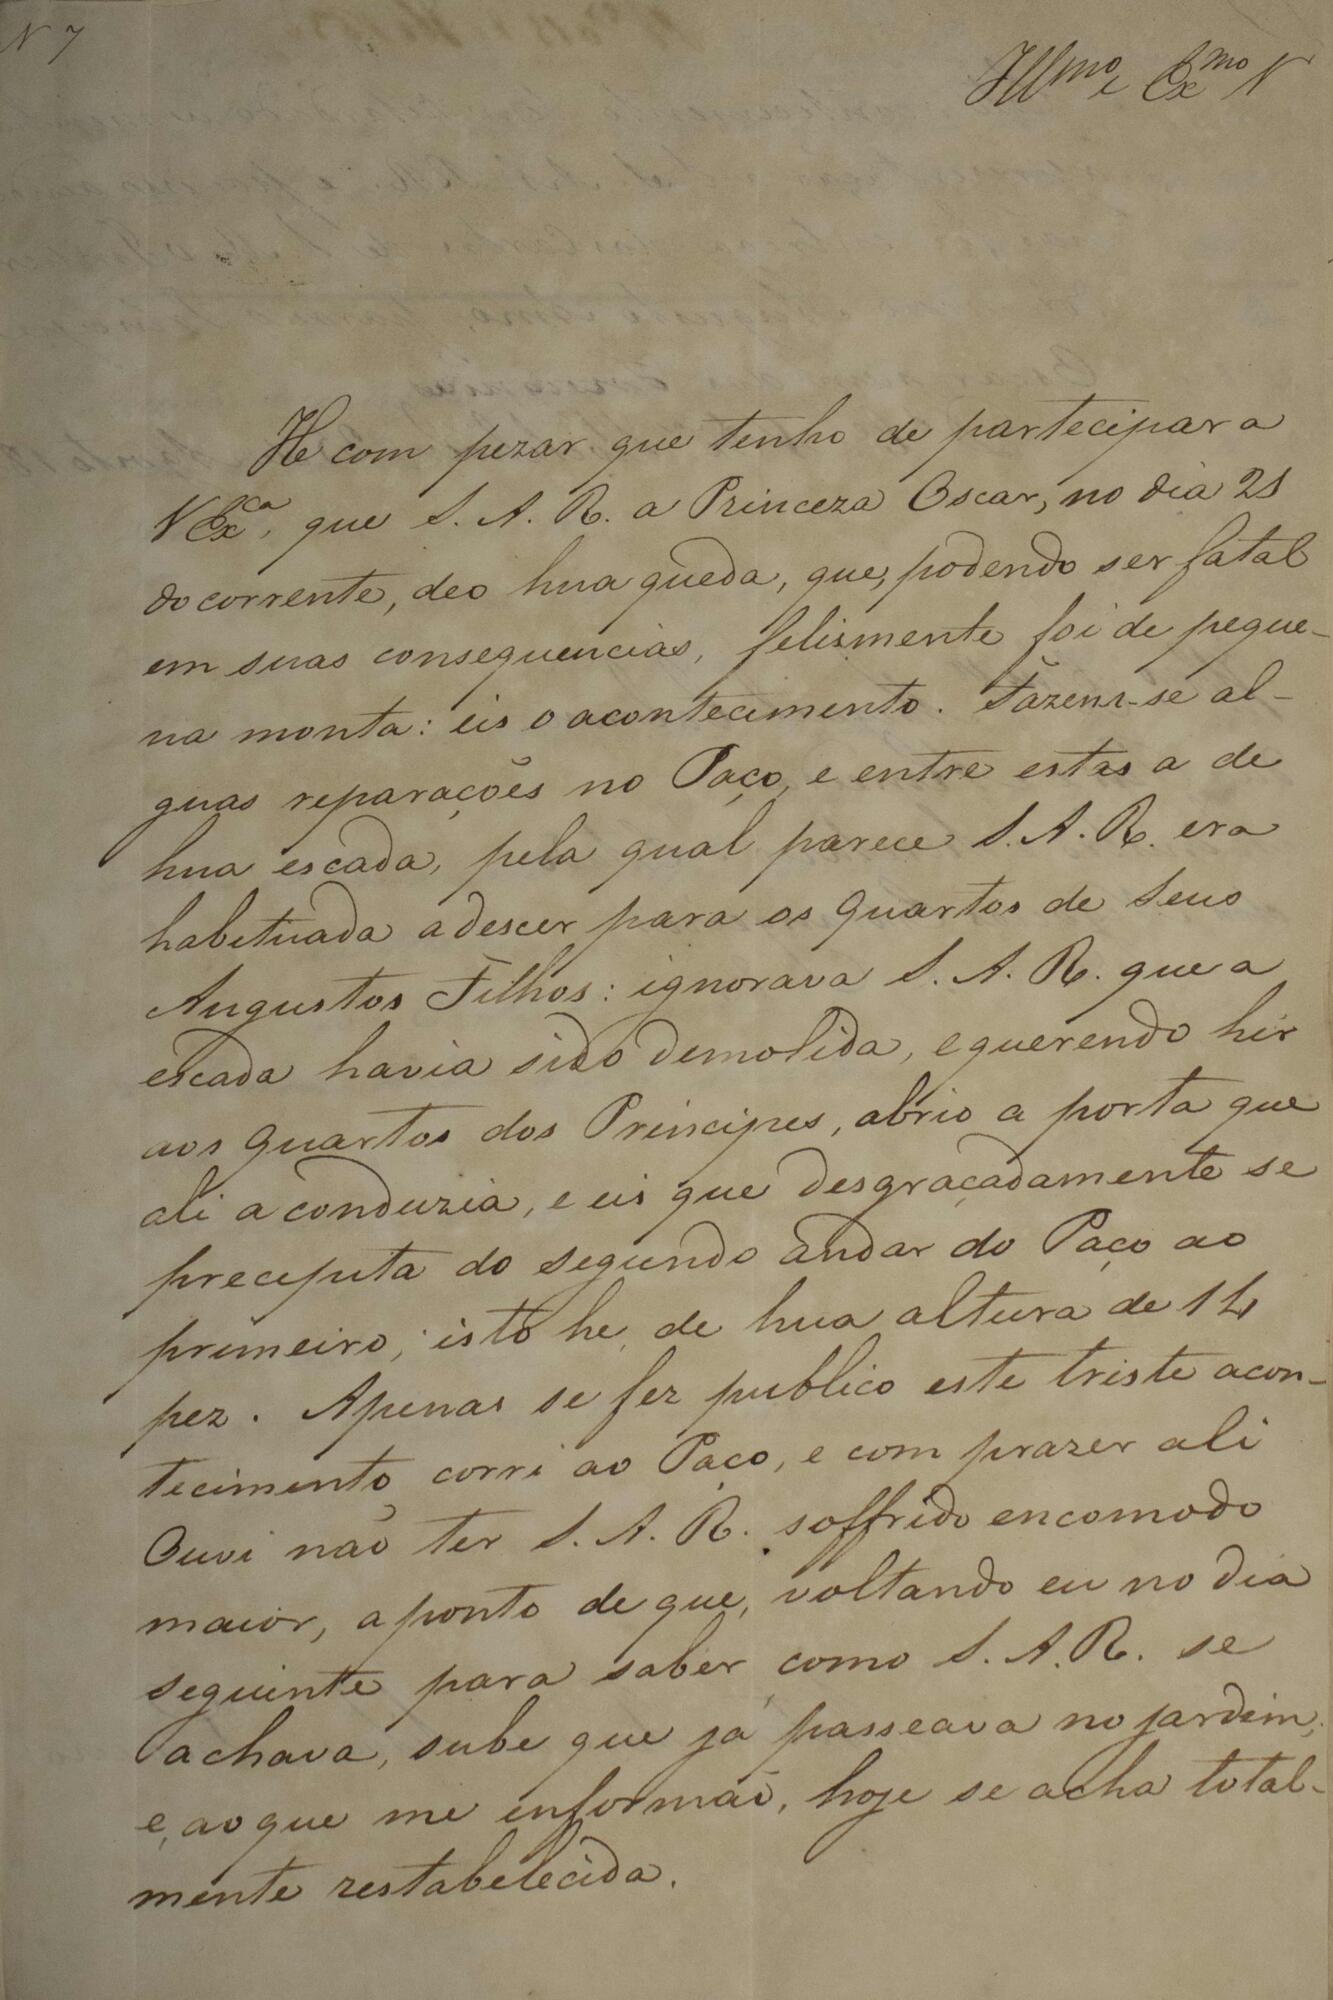 N 7
Illmo e Exmo N
He com pezar que tenho de partecipar a
V Exca, que S. A. R. a Princeza Oscar, no dia 21
do corrente, deo hua quéda, que, podendo ser fatal
em suas consequencias, felismente foi de peque-
na monta: eis o acontecimento. Fazem-se al-
guas reparações no Paço, e entre estas a de
hua escada, pela qual parece S. A. R. era
habituada a descer para os Quartos de Seus
Augustos Filhos: ignorava S. A. R. que a
escada havia sido demolida, e querendo hir
aos Quartos dos Principes, abrio a porta que
ali a conduzia, e eis que desgraçadamente se
precepita do segundo andar do Paço ao
primeiro; isto he, de hua altura de 14
pez. Apenas se fez publico este triste acon-
tecimento corri ao Paço, e com prazer ali
Ouvi não ter S. A. R. soffrido encomodo
maior, a ponto de que, voltando eu no dia
seguinte para saber como S. A. R. se
achava, sube que já passeava no jardim,
e, ao que me informão, hoje se acha total-
mente restabelecida.